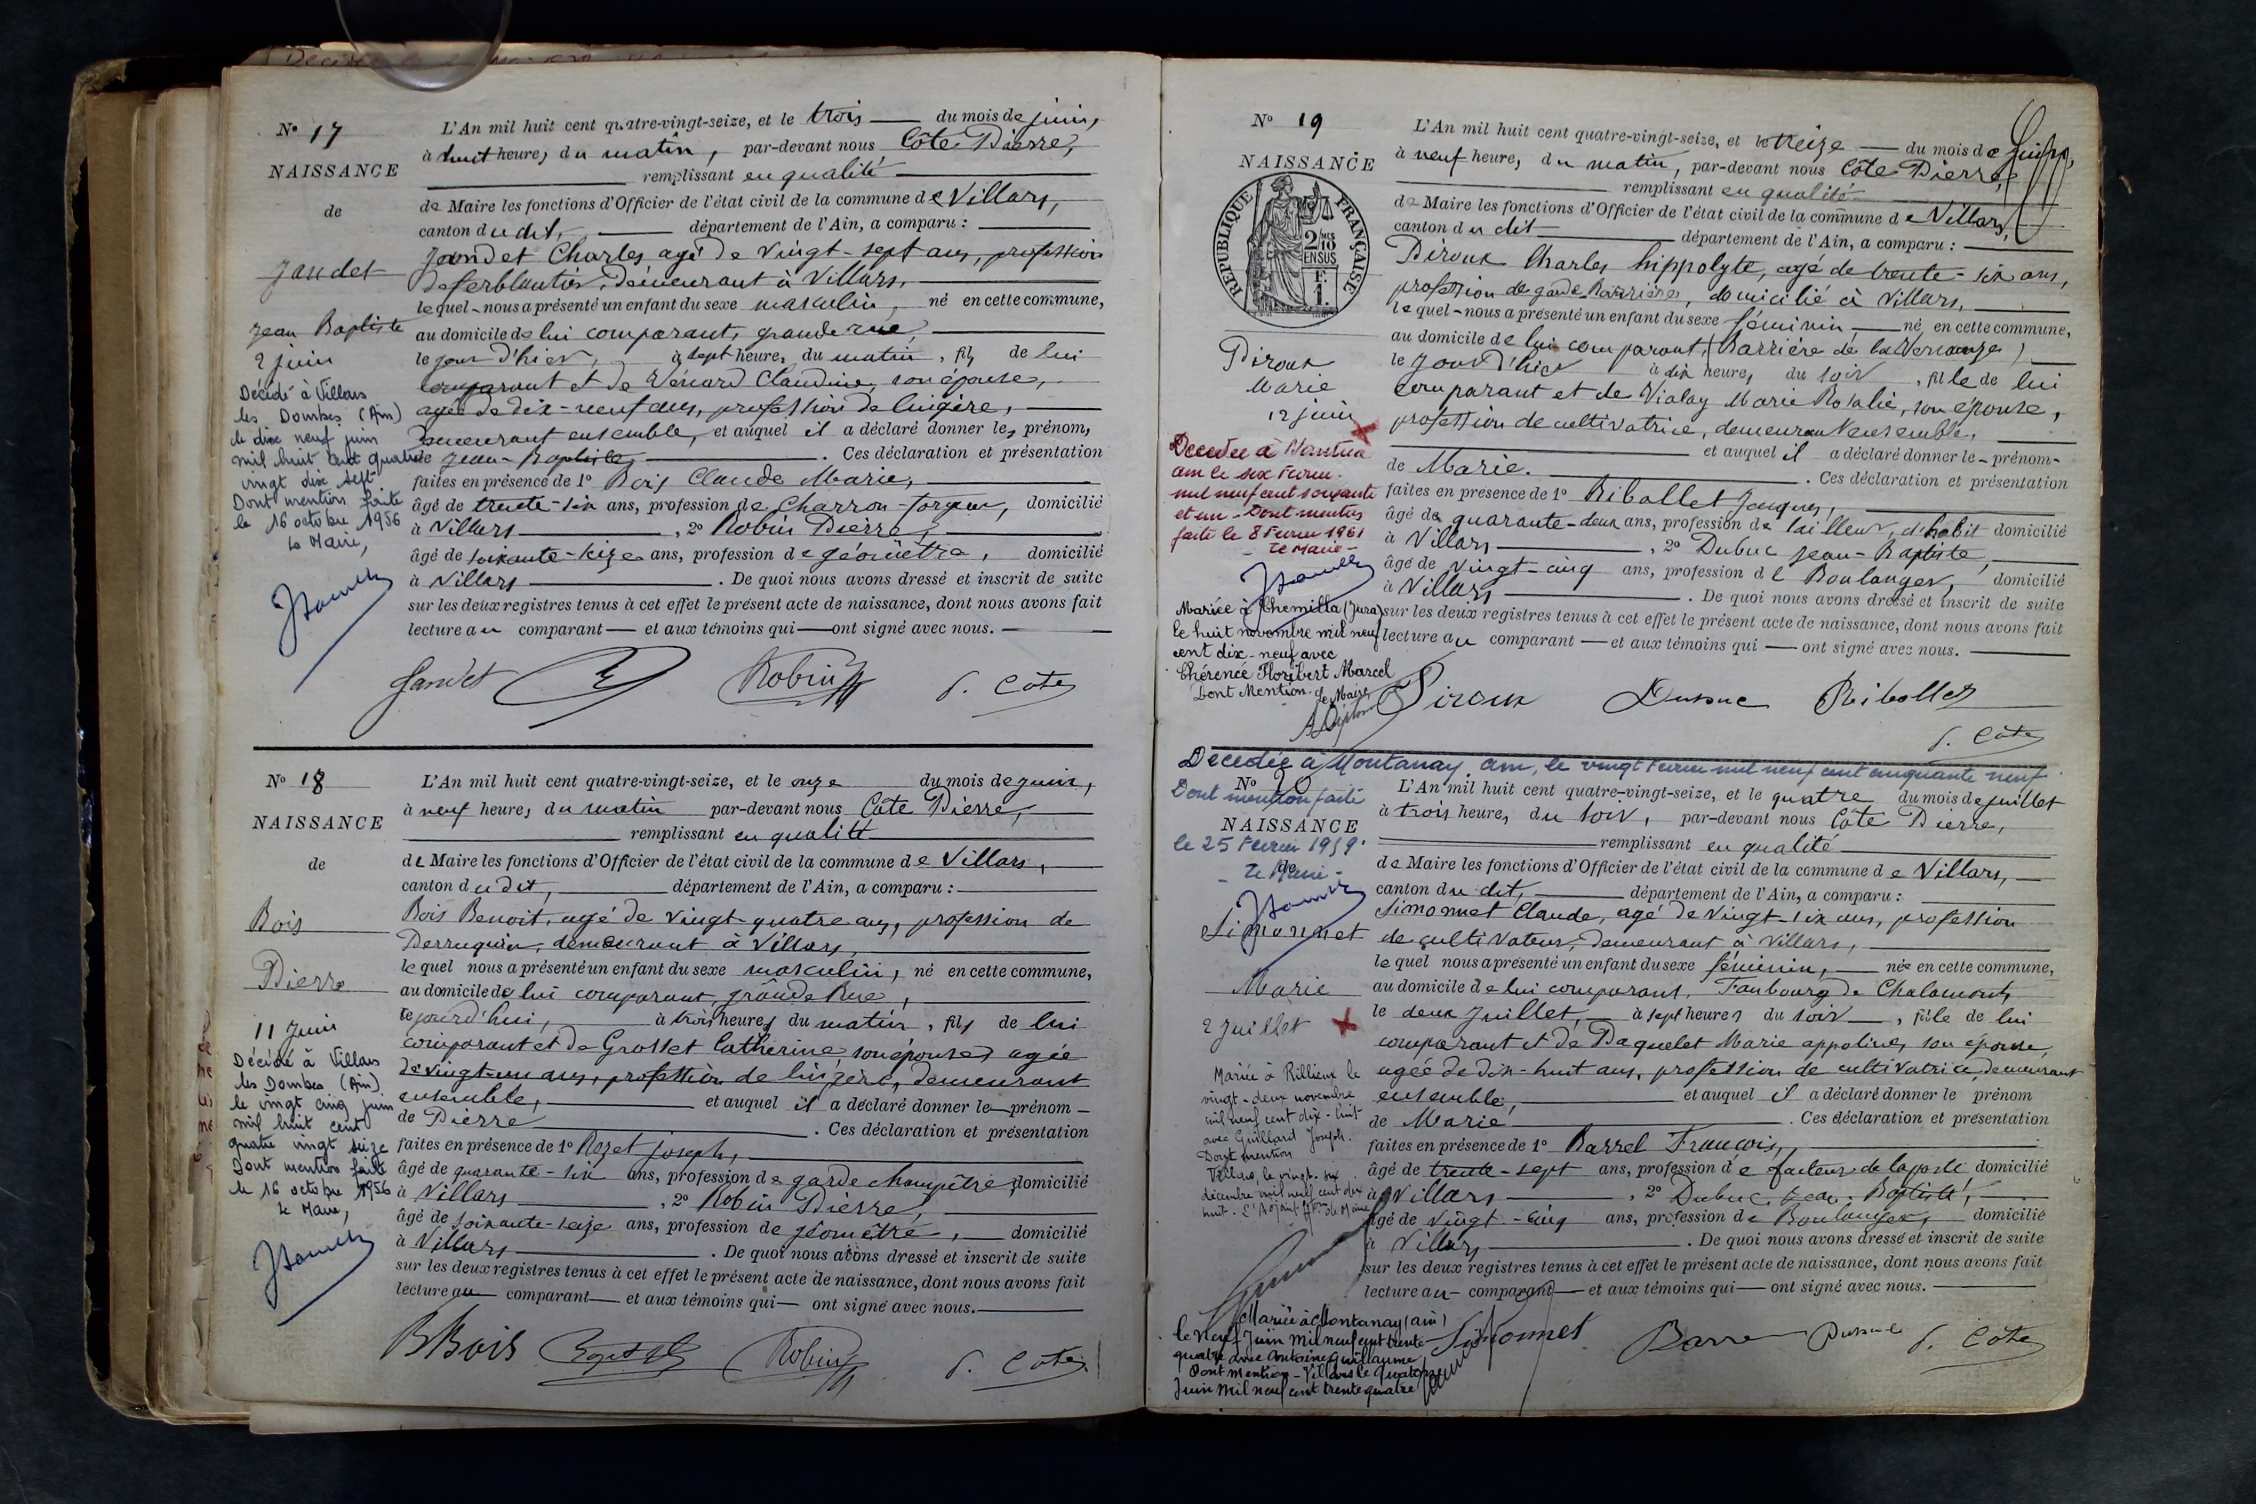 No 17
NAISSANCE
de
Jandet
Jean Baptiste
2 juin
Décédé à Villars
les Dombes (Ain)
le dix neuf juin
mil huit cent quatre
vingt dix sept
Dont mention faite
le 16 octobre 1956
Le Maire,
L'An mil huit cent quatre-vingt-seize, et le trois du mois de juin,
à huit heures du matin, par-devant nous Côte Pierre,
remplissant en qualité
de Maire les fonctions d'Officier de l'état civil de la commune de Villars,
canton du dit, département de l'Ain, a comparu :
Jandet Charles agé de vingt-sept ans, profession
de ferblantier, demeurant à Villars,
lequel nous a présenté un enfant du sexe masculin, né en cette commune,
au domicile de lui comparant, grande rue,
le jour d'hier, à sept heures du matin, fils de lui
comparant et de Vénard Claudine, son épouse,
agée de dix-neuf ans, profession de lingère,
demeurant ensemble, et auquel il a déclaré donner les prénoms
de Jean-Baptiste, . Ces déclaration et présentation
faites en présence de 1o Bois Claude Marie,
âgé de trente-six ans, profession de charron-forgeur, domicilié
à Villars, 2o Robin Pierre,
âgé de soixante-seize ans, profession de géomètre, domicilié
à Villars . De quoi nous avons dressé et inscrit de suite
sur les deux registres tenus à cet effet le présent acte de naissance, dont nous avons fait
lecture au comparant et aux témoins qui ont signé avec nous.
Jandet Robin P. Côte
No 18
NAISSANCE
de
Bois
Pierre
11 Juin
Décédé à Villars
les Dombes (Ain)
le vingt cinq juin
mil huit cent
quatre vingt seize
Dont mention faite
le 16 octobre 1956
Le Maire,
L'An mil huit cent quatre-vingt-seize, et le onze du mois de juin,
à neuf heures du matin par-devant nous Côte Pierre,
remplissant en qualité
de Maire les fonctions d'Officier de l'état civil de la commune de Villars,
canton du dit, département de l'Ain, a comparu :
Bois Benoit, agé de vingt-quatre ans, profession de
Perruquier, demeurant à Villars,
lequel nous a présenté un enfant du sexe masculin, né en cette commune,
au domicile de lui comparant, grande Rue,
le jourd'hui, à trois heures du matin, fils de lui
comparant et de Grosset Catherine, son épouse, agée
de vingt-un ans, profession de lingère, demeurant
ensemble, et auquel il a déclaré donner le prénom
de Pierre . Ces déclaration et présentation
faites en présence de 1o Rozet Joseph,
âgé de quarante-six ans, profession de garde champêtre, domicilié
à Villars, 2o Robin Pierre,
âgé de soixante-seize ans, profession de géomètre, domicilié
à Villars . De quoi nous avons dressé et inscrit de suite
sur les deux registres tenus à cet effet le présent acte de naissance, dont nous avons fait
lecture au comparant et aux témoins qui ont signé avec nous.
B Bois Robin P. Côte
No 19
NAISSANCE
RÉPUBLIQUE FRANÇAISE
2/10 MES
EN SUS
Piroux
Marie
12 juin
Décédée à Nantua
ain le six Fevrier
mil neuf cent soixante
et un - Dont mention
faite le 8 Fevrier 1961
- Le Maire -
Mariée à Chemilla (Jura)
le huit novembre mil neuf
cent dix-neuf avec
Chérencé Floribert Marcel
Dont Mention. Le Maire
L'An mil huit cent quatre-vingt-seize, et le treize du mois de Juin,
à neuf heures du matin, par-devant nous Côte Pierre,
remplissant en qualité
de Maire les fonctions d'Officier de l'état civil de la commune de Villars,
canton du dit département de l'Ain, a comparu :
Piroux Charles hippolyte, agé de trente-six ans,
profession de garde-Barrières, domicilié à Villars,
lequel nous a présenté un enfant du sexe féminin né en cette commune,
au domicile de lui comparant, (Barrière de la
le jour d'hier à dix heures du soir, fille de lui
comparant et de Vialay Marie Rosalie, son épouse,
profession de cultivatrice, demeurant ensemble,
et auquel il a déclaré donner le prénom
de Marie. . Ces déclaration et présentation
faites en présence de 1o Ribollet Jacques,
âgé de quarante-deux ans, profession de tailleur d'habit domicilié
à Villars, 2o Dubuc Jean-Baptiste,
âgé de vingt-cinq ans, profession de Boulanger, domicilié
à Villars . De quoi nous avons dressé et inscrit de suite
sur les deux registres tenus à cet effet le présent acte de naissance, dont nous avons fait
lecture au comparant et aux témoins qui ont signé avec nous.
Piroux Dubuc Ribollet
P. Côte
Décédée à Montanay ain, le vingt Fevrier mil neuf cent cinquante neuf
Dont mention faite
le 25 Fevrier 1959.
- Le Maire -
No 20
NAISSANCE
de
Simonnet
Marie
2 Juillet
Mariée à Rillieux le
vingt-deux novembre
mil neuf cent dix-huit
avec Guillard Joseph.
Dont mention
Villars, le vingt-six
décembre mil neuf cent dix
huit. L'Adjoint ff. de Maire
Mariée à Montanay (ain)
le neuf Juin mil neuf cent trente
quatre avec Antoine Guillaume
Dont mention - Villars le quatorze
Juin Mil neuf cent trente quatre
L'An mil huit cent quatre-vingt-seize, et le quatre du mois de juillet
à trois heures du soir, par-devant nous Côte Pierre,
remplissant en qualité
de Maire les fonctions d'Officier de l'état civil de la commune de Villars,
canton du dit, département de l'Ain, a comparu :
Simonnet Claude, agé de vingt-six ans, profession
de cultivateur, demeurant à Villars,
lequel nous a présenté un enfant du sexe féminin, née en cette commune,
au domicile de lui comparant, Faubourg de Chalamont,
le deux Juillet, à sept heures du soir, fille de lui
comparant et de Paquelet Marie appoline, son épouse,
agée de dix-huit ans, profession de cultivatrice, demeurant
ensemble, et auquel il a déclaré donner le prénom
de Marie . Ces déclaration et présentation
faites en présence de 1o Barrel François,
âgé de trente-sept ans, profession de facteur de la poste domicilié
à Villars, 2o Dubuc, Jean-Baptiste,
âgé de vingt-cinq ans, profession de Boulanger, domicilié
à Villars . De quoi nous avons dressé et inscrit de suite
sur les deux registres tenus à cet effet le présent acte de naissance, dont nous avons fait
lecture au comparant et aux témoins qui ont signé avec nous.
Simonnet Barrel Dubuc P. Côte